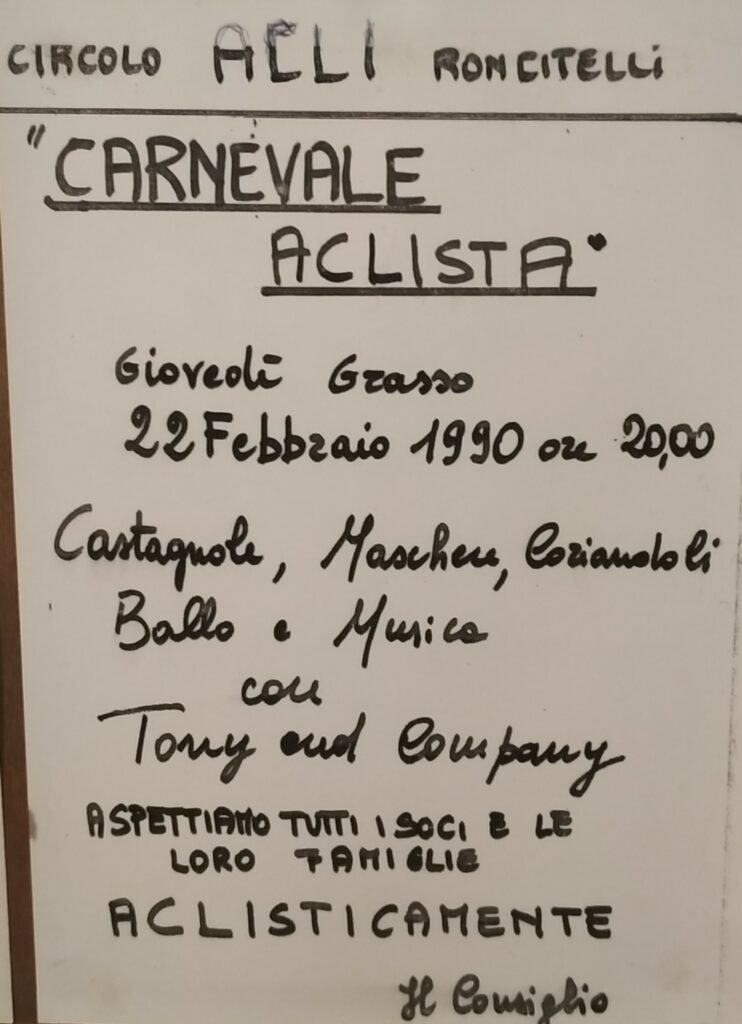 CIRCOLO ACLI RONCITELLi
"CARNEVALE
ACLISTA"
Giovedì Grasso
22 Febbraio 1990 ore 20,00
Castagnole, Maschere, Coriandoli
Ballo e Musica
con
Tony and Company
ASPETTIAMO TUTTI I SOCI E LE
LORO FAMIGLIE
ACLISTICAMENTE
Il Consiglio